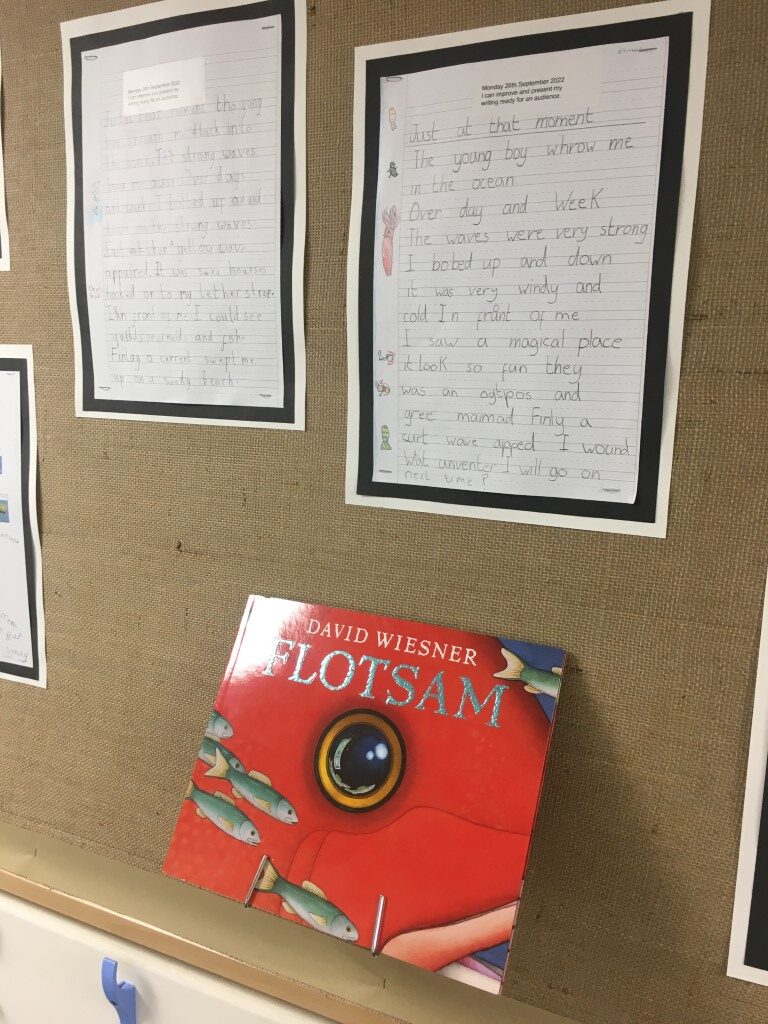 Monday 26th September 2022
I can improve and present my
writing ready for an audience.
Just at that moment the young
boy through me back in to
the ocean. The strong waves
took me away. Over days
and week I bobbed up and
down in the strong waves.
Just at that yellow wave
appaired. It was sea hourses
hocked on to my lether strap.
In front of me I could see
and fish.
Finlay a current swept me
up on a sandy beach.
Monday 26th September 2022
I can improve and present my
writing ready for an audience.
Just at that moment
The young boy whrow me
in the ocean.
Over day and week
The waves were very strong
I bobed up and down
it was very windy and
cold In front of me
I saw a magical place
it look so fun they
was an ogtpos and
gree maimad Finly a
wave apped I wound
Wat anventer I will go on
next time?
DAVID WIESNER
FLOTSAM